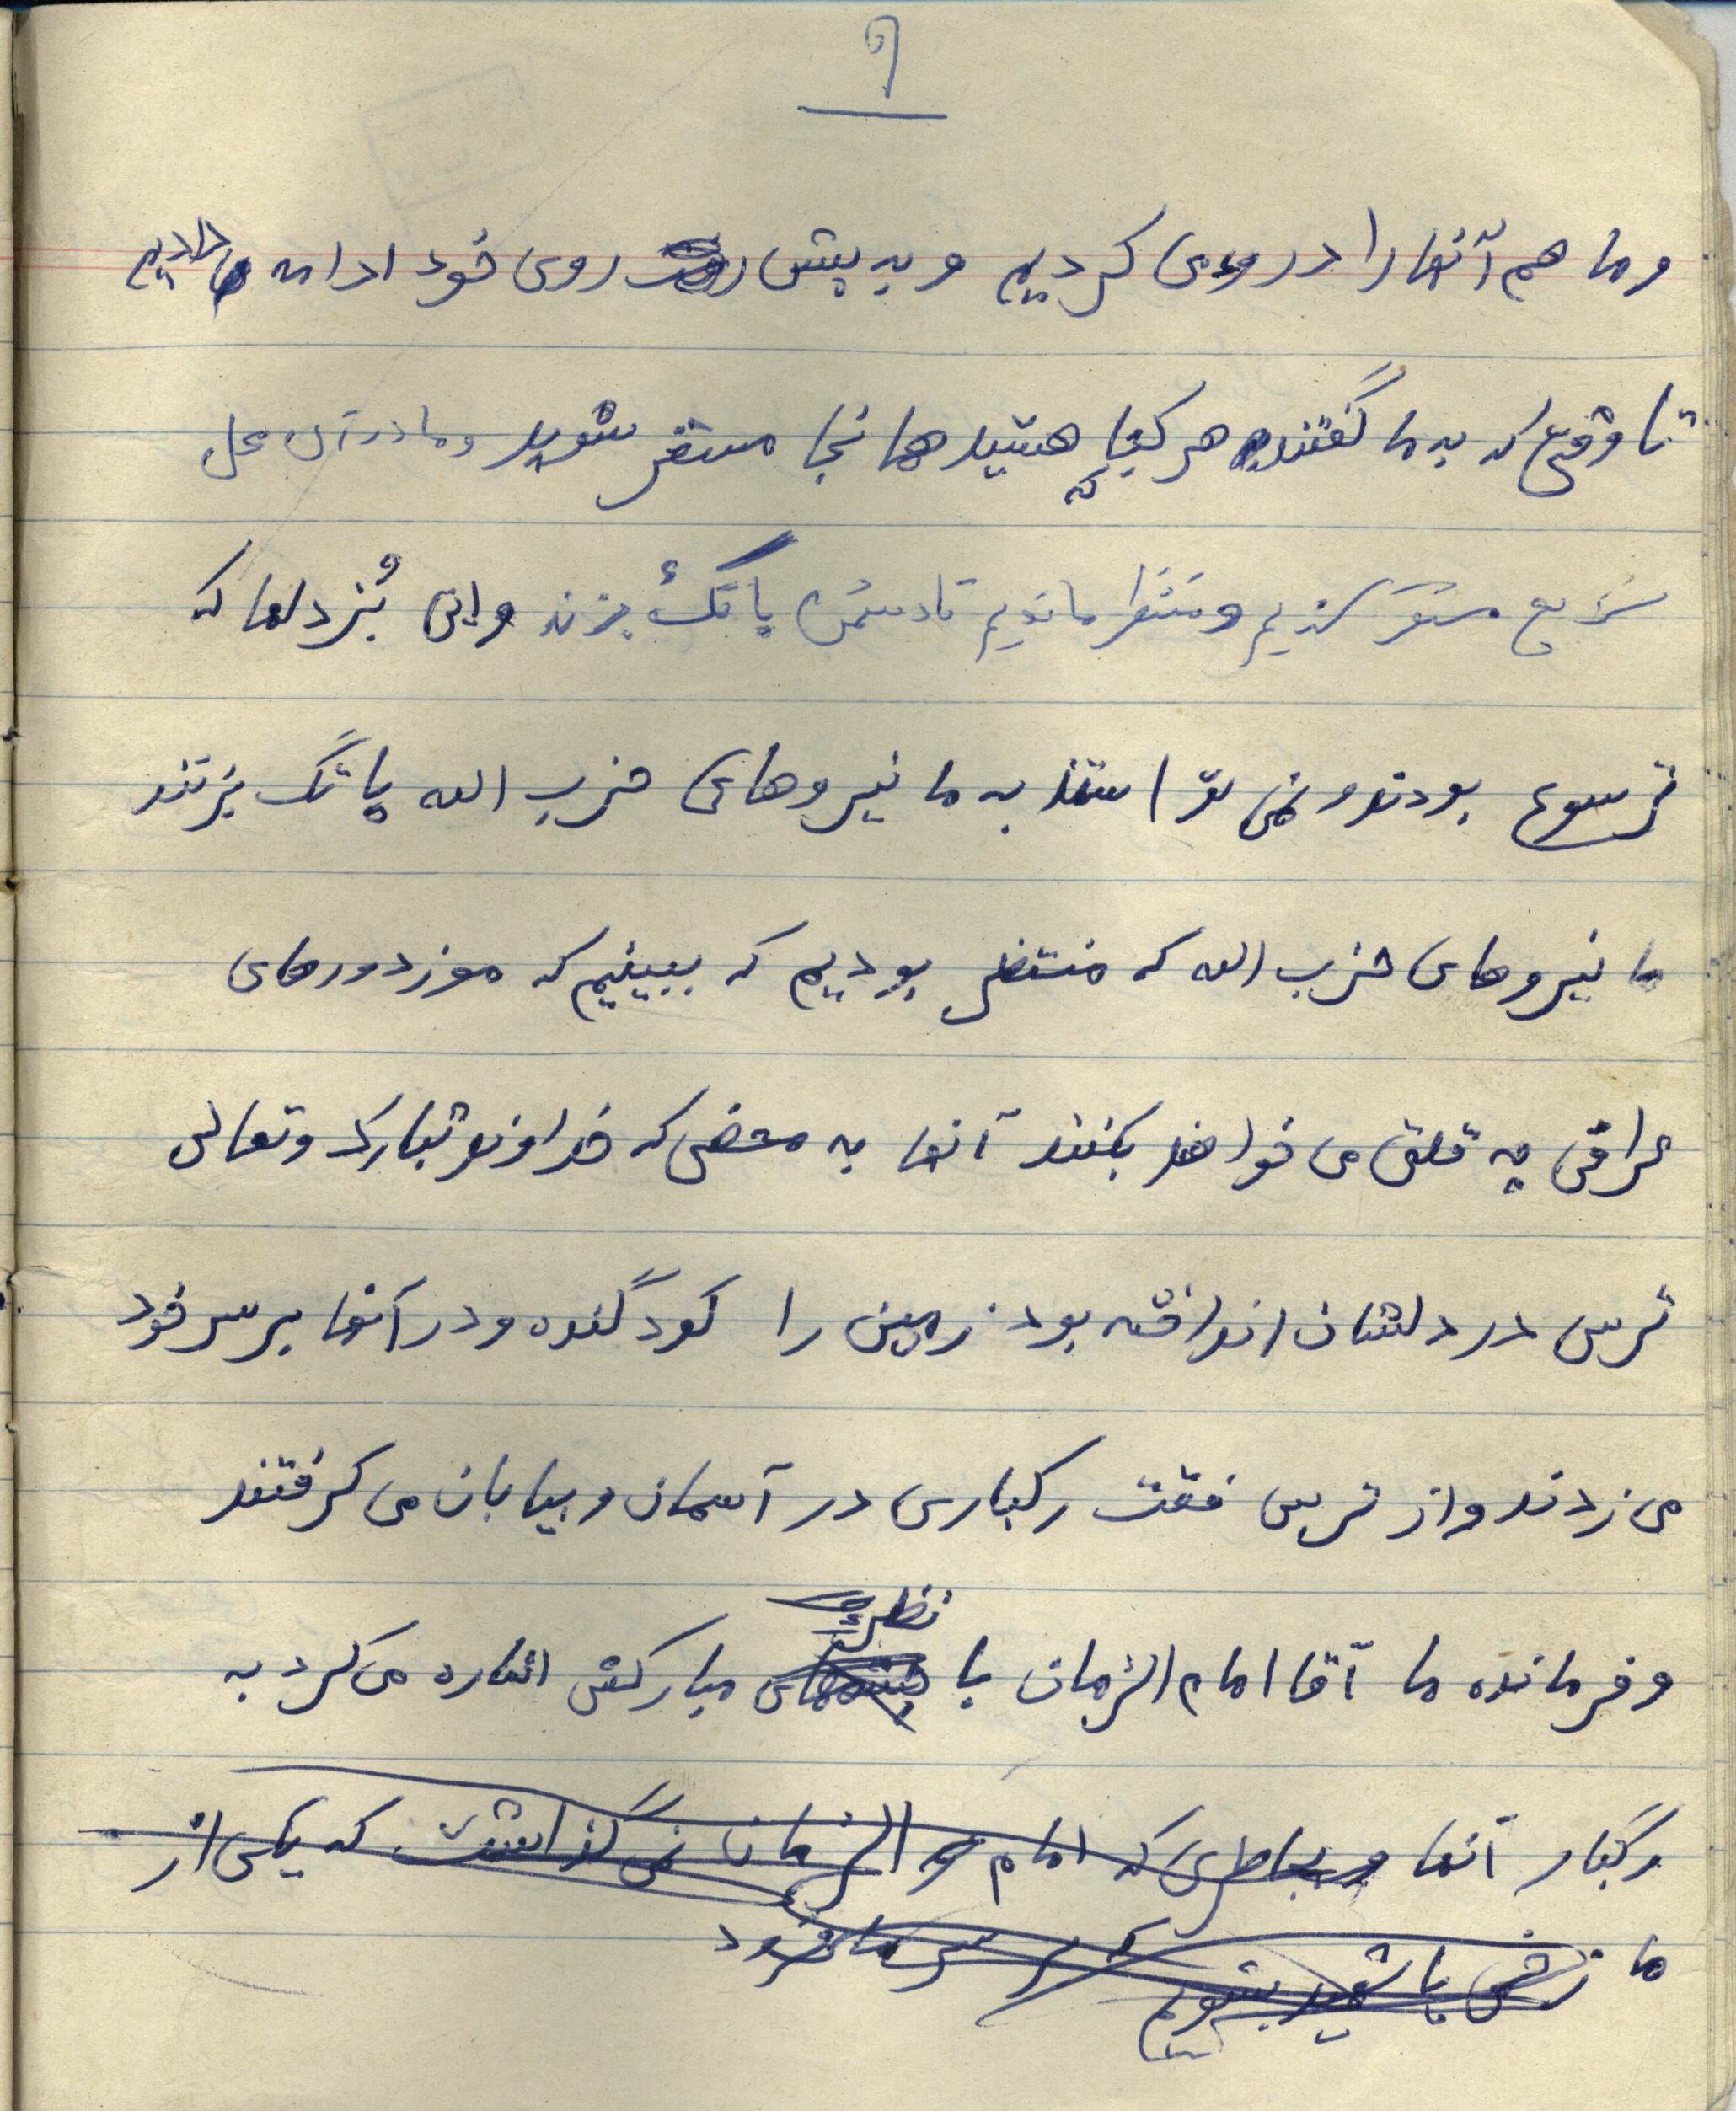 ۹
و ما هم آنها را درو می کردیم و به پیش روی خود ادامه دادیم
تا وقتی که به ما گفتند هر کجا که هستید همانجا مستقر شوید و ما در آن محل
سریع مستقر شدیم و منتظر ماندیم تا دشمن پاتک بزند و این بُزدلها که
ترسوی بودند و نمی توانستند به ما نیروهای حزب الله پاتک بزنند
ما نیروهای حزب الله که منتظر بودیم که ببینیم که مزدورهای
عراقی چه غلتی می خواهند بکنند آنها به محضی که خداوند تبارک و تعالی
ترس در دلشان انداخته بود زمین را گود کنده و در آنها بر سر خود
می زدند و از ترس فقت رگباری در آسمان و بیابان می گرفتند
و فرمانده ما آقا امام الزمان با نظر مبارکش اشاره می کرد به
رگبار آنها و بخاطری که امام الزمان نمی گذاشت که یکی از
ما زخمی یا شهید بشویم بر سر ما خود